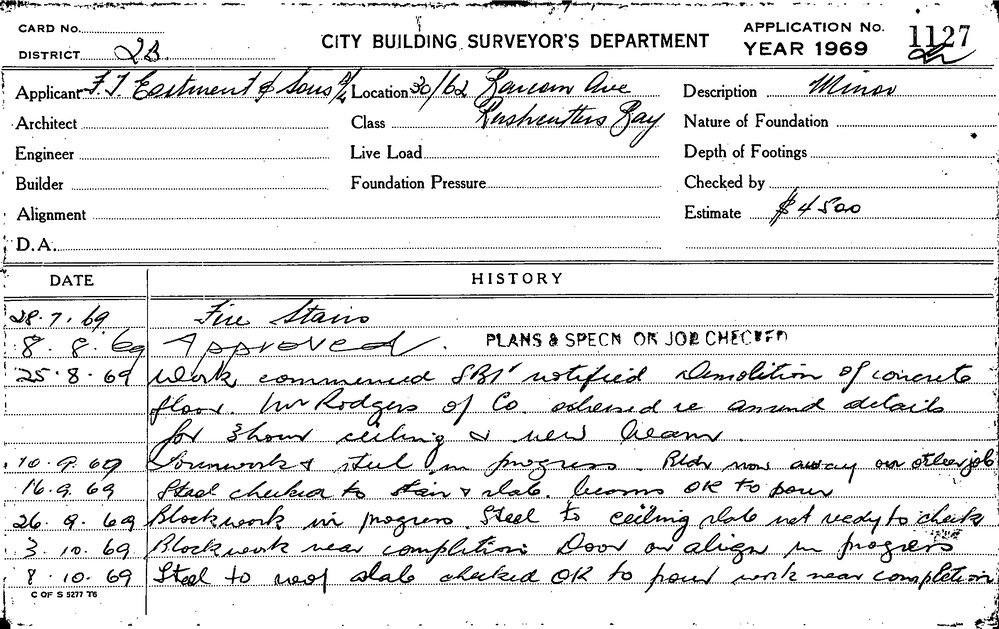 CARD No.
DISTRICT 2B.
CITY BUILDING SURVEYOR'S DEPARTMENT
APPLICATION No. 1127
YEAR 1969
Applicant F. T. Eastment & Sons P/L Location 30/62 Barcom Ave Description Minor
Architect Class Rushcutters Bay Nature of Foundation
Engineer Live Load Depth of Footings
Builder Foundation Pressure Checked by
Alignment Estimate $4500
D.A.
DATE HISTORY
28.7.69 Fire Stairs
8.8.69 Approved. PLANS & SPECN ON JOB CHECKED
25.8.69 Work commenced notified Demolition of concrete
floor. Mr Rodgers of Co. advised re amend details
for 3 hour ceiling & new beam.
10.9.69 Formwork & steel in progress. Bldr now away on other job
16.9.69 Steel checked to stair & slab. beams OK to pour
26.9.69 Blockwork in progress. Steel to ceiling slab not ready to check
3.10.69 Blockwork near completion Door on align in progress
8.10.69 Steel to roof slab checked OK to pour work near completion
C OF S 5277 T6